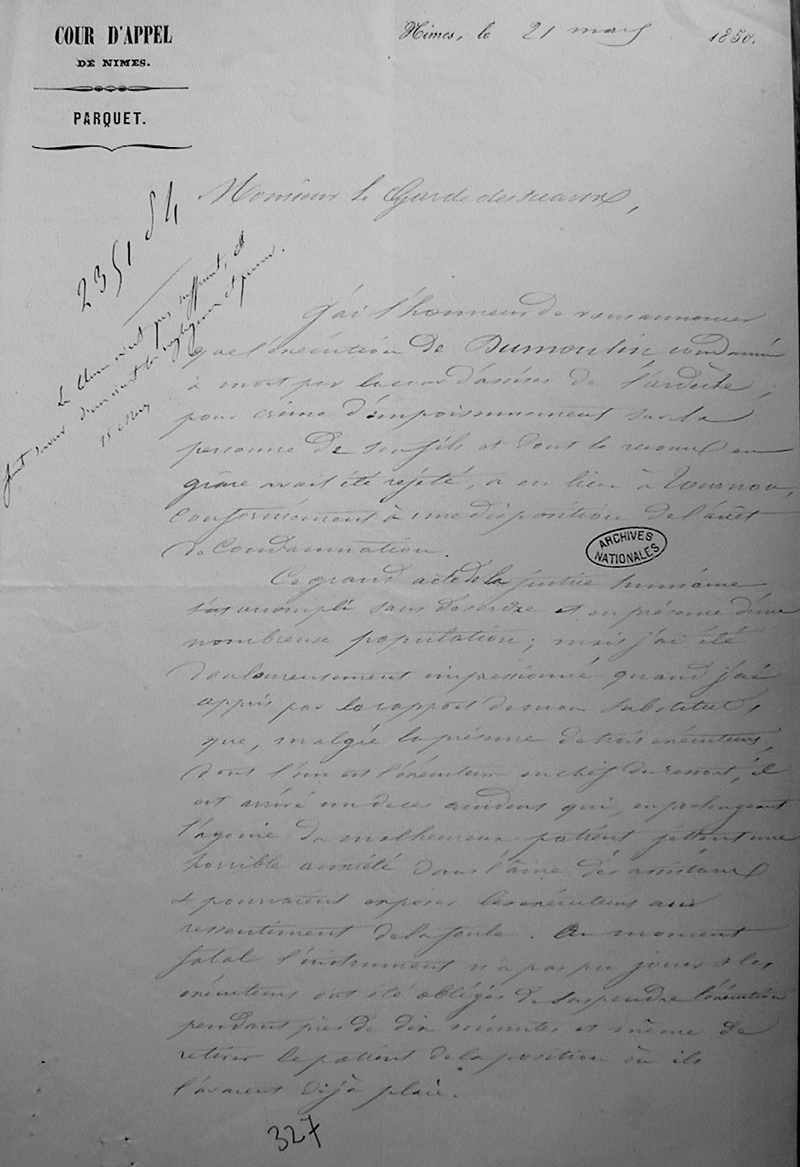 COUR D'APPEL
DE NIMES.
PARQUET.
Nimes, le 21 mars 1850.
2351 S4
Le blâme n'est pas suffisant, il
faut
18 Mars
Monsieur le Garde des sceaux,
J'ai l'honneur de vous annoncer
que l'exécution de Dumoulin, condamné
à mort par la cour d'assises de l'ardèche,
pour crime d'empoisonnement sur la
personne de son fils et dont le recours en
grâce avait été rejeté, a eu lieu à Tournon,
conformément à une disposition de l'arrêt
de condamnation.
ARCHIVES
NATIONALES
Ce grand acte de la justice humaine
s'est accompli sans désordre et en présence d'une
nombreuse population; mais j'ai été
douloureusement impressionné quand j'ai
appris par le rapport de mon substitut,
que, malgré la présence de trois exécuteurs,
dont l'un est l'exécuteur en chef du ressort, il
est arrivé un de ces accidens qui, en prolongeant
l'agonie du malheureux patient jettent une
horrible anxiété dans l'âme des assistans
& pourraient exposer les exécuteurs au
ressentiment de la foule. Au moment
fatal l'instrument n'a pas pu jouer & les
exécuteurs ont été obligés de suspendre l'exécution
pendant près de dix minutes et même de
retirer le patient de la position où ils
l'avaient déjà placé.
327